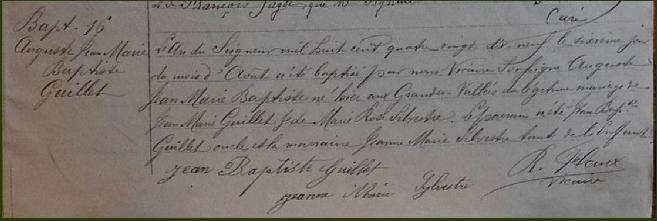 François
Curé
Bapt - 16
Auguste Jean Marie
Baptiste
Guillet
L'An du Seigneur mil huit cent quatre vingt dix neuf le sixième jour
du mois d'Aout a été baptisé par nous Vicaire Soussigné Auguste
Jean Marie Baptiste né hier aux Grandes Vallées du légitime mariage de
Jean Marie Guillet & de Marie Rose Silvestre. Le parrain a été Jean Bapte
Guillet oncle et la marraine Jeanne Marie Silvestre tante de l'enfant
Jean Baptiste Guillet
jeanne Marie Sylvestre
R.
vicaire